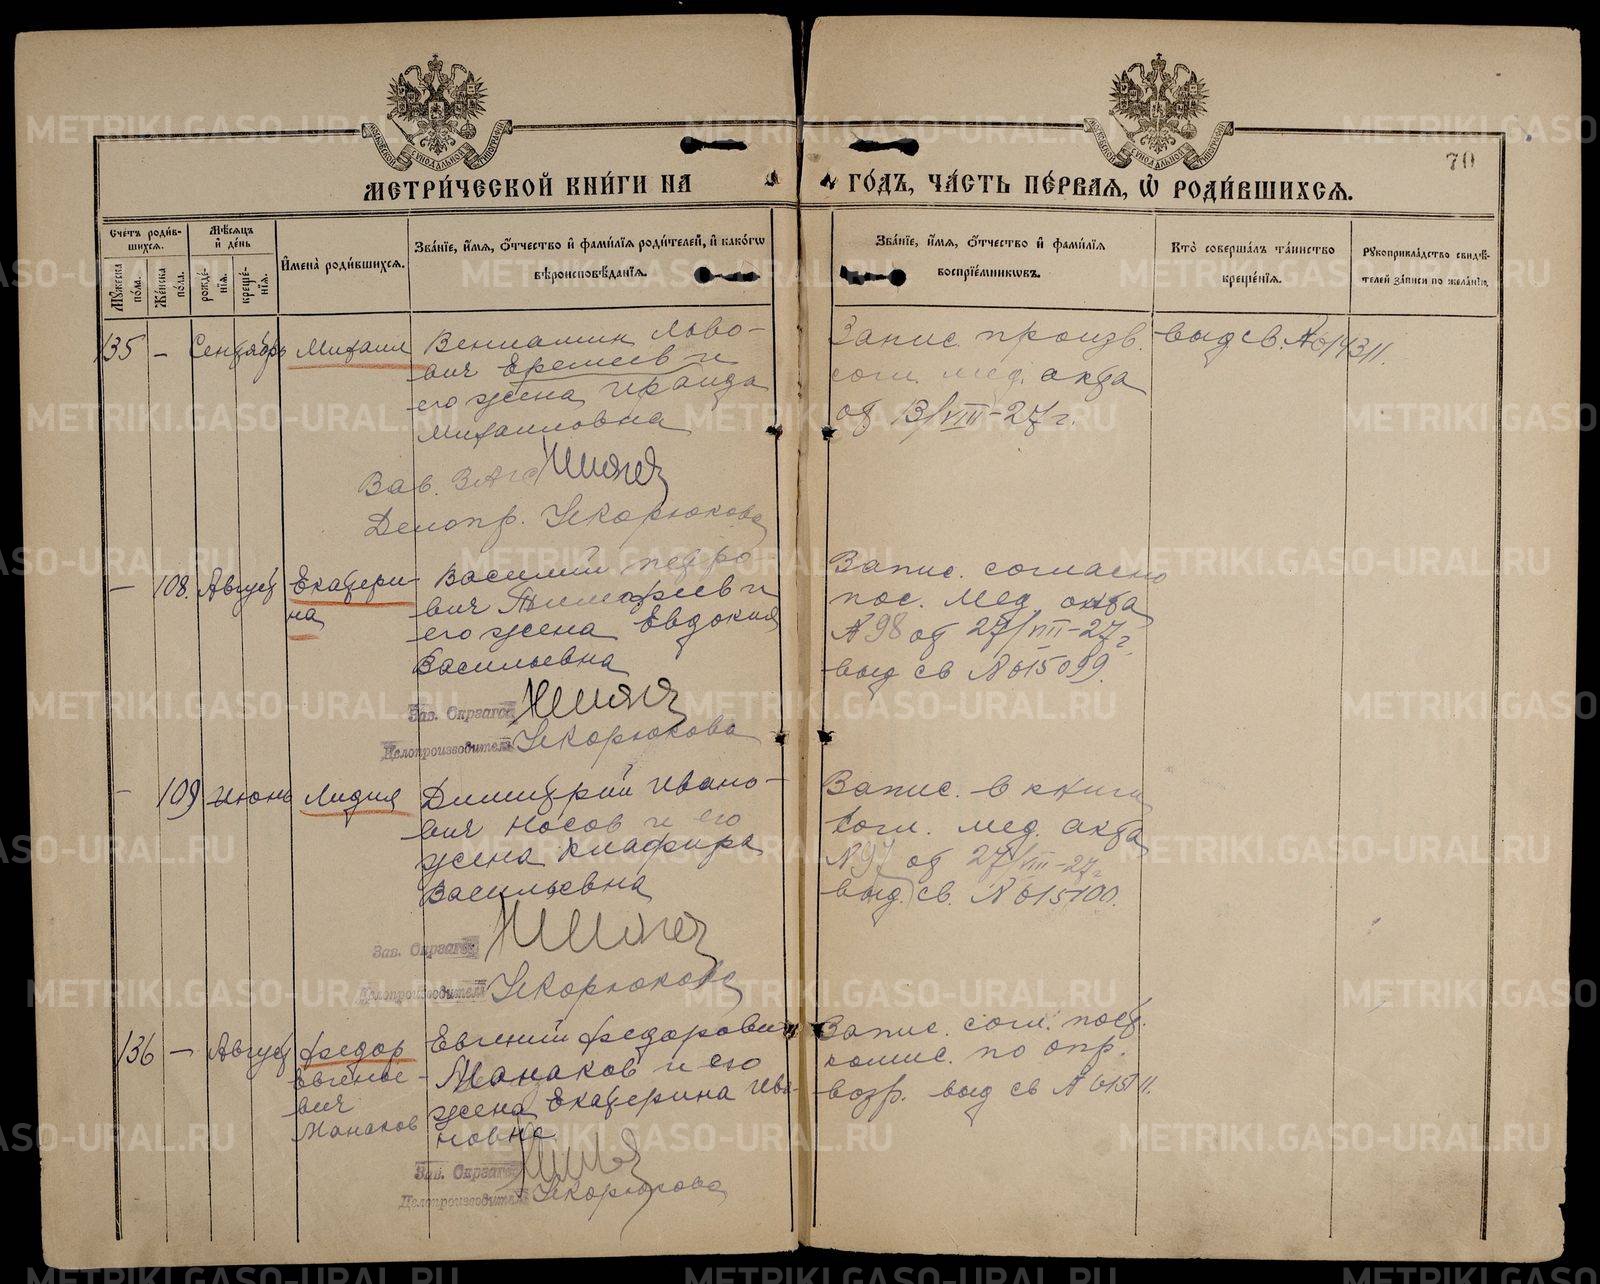 70
МЕТРИ́ЧЕСКОЙ КНИ́ГИ НА
ГО́ДЪ, ЧА́СТЬ ПЕ́РВАЯ, Ѡ РОДИ́ВШИХСѦ.
Сче́тъ роди́в-
шихсѧ.
Мѣ́сѧцъ
и҆ де́нь
И҆мена̀ роди́вшихсѧ.
Зва́нїе, и҆́мѧ, ѻ҆́тчество и҆ фами́лїѧ роди́телей, и҆ како́гѡ
вѣроисповѣ́данїѧ.
Мꙋ́жеска по́ла.
Же́нска по́ла.
рожде́-нїѧ.
креще́-нїѧ.
Зва́нїе, и҆́мѧ, ѻ҆́тчество и҆ фами́лїѧ
воспрїе́мникѡвъ.
Кто̀ соверша́лъ та́инство
креще́нїѧ.
Рꙋкоприкла́дство свидѣ́-
телей за́писи по жела́нїю.
135 – Сентябрь Михаил
Вениамин Льво-
вич Еремеев и
его жена Ираида
Михаиловна
Зав. ЗАГС
Делопр. Чекорюкова
Запис. произв.
согл. мед. акта
от 13/VIII-27 г.
выд св. № 014311.
– 108. Август Екатери-
на
Василий Петро
вич Тимофеев и
его жена Евдокия
Васильевна
Зав. Окрзагс
Делопроизводитель Чекорюкова
Запис. согласно
пос. мед. акта
№ 98 от 27/VIII-27 г.
выд св № 015099.
– 109 Июнь Лидия
Димитрий Ивано-
вич Носов и его
жена Клафира
Васильевна
Зав. Окрзагс
Делопроизводитель Чекорюкова
Запис. в книги
согл. мед. акта
№ 97 от 27/VIII-27 г
выд. св. № 015100.
136 – Август Федор
Евгение-
вич
Манаков
Евгений Федорович
Манаков и его
жена Екатерина Ива-
новна
Зав. Окрзагс
Делопроизводитель Чекорюкова
Запис. согл. пост.
комис. по опр.
возр. выд св №
METRIKI.GASO-URAL.RU